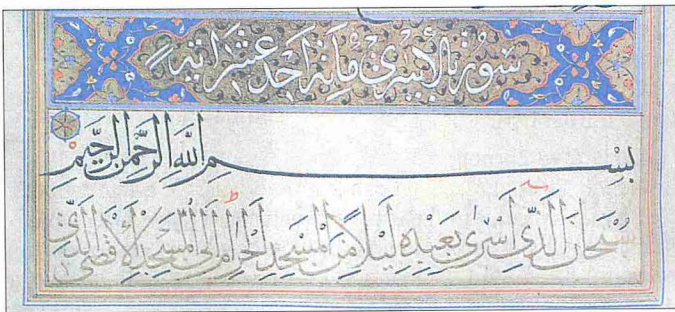 سورة الأسرى مأية احد عشر اية
بِسْمِ اللَّهِ الرَّحْمٰنِ الرَّحِيمِ
سُبْحَانَ الَّذِى اَسْرٰى بِعَبْدِهِ لَيْلًا مِنَ الْمَسْجِدِ الْحَرَامِ اِلَى الْمَسْجِدِ الْاَقْصَى الَّذِى